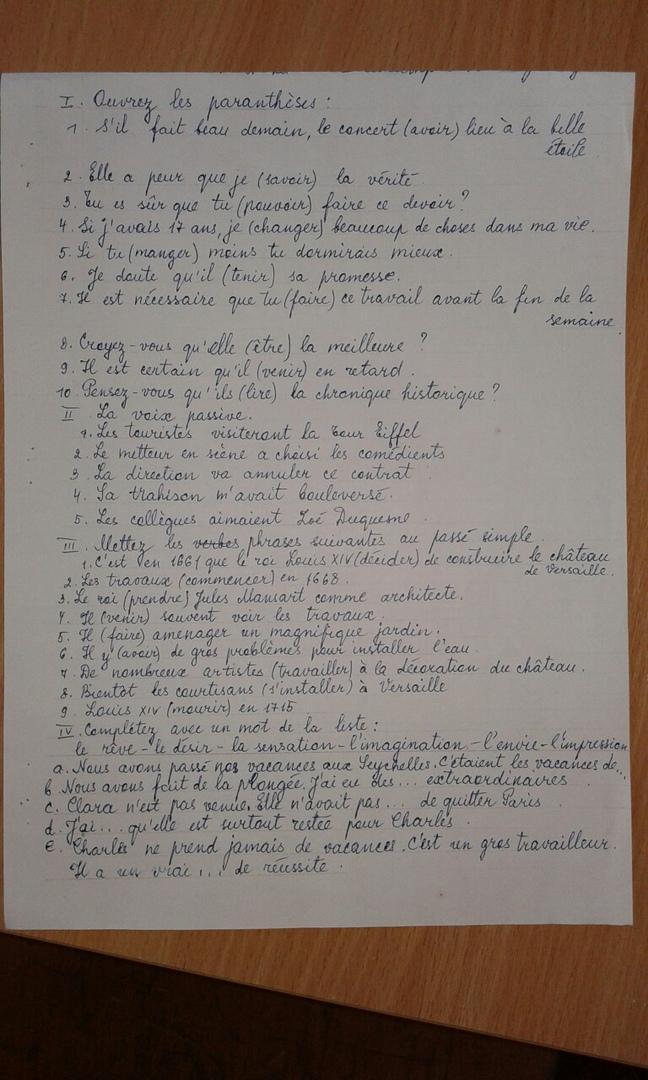 I. Ouvrez les paranthèses :
1. S'il fait beau demain, le concert (avoir) lieu à la belle
étoile
2. Elle a peur que je (savoir) la vérité.
3. Tu es sûr que tu (pouvoir) faire ce devoir ?
4. Si j'avais 17 ans, je (changer) beaucoup de choses dans ma vie.
5. Si tu (manger) moins tu dormirais mieux.
6. Je doute qu'il (tenir) sa promesse.
7. Il est nécessaire que tu (faire) ce travail avant la fin de la
semaine.
8. Croyez-vous qu'elle (être) la meilleure ?
9. Il est certain qu'il (venir) en retard.
10. Pensez-vous qu'ils (lire) la chronique historique ?
II La voix passive.
1. Les touristes visiteront la tour Eiffel
2. Le metteur en scène a choisi les comédients
3. La direction va annuler ce contrat
4. Sa trahison m'avait bouleversé.
5. Les collègues aimaient Zoé Duquesne.
III. Mettez les verbes phrases suivantes au passé simple.
1. C'est en 1661 que le roi Louis XIV (décider) de construire le château
de Versaille.
2. Les travaux (commencer) en 1668.
3. Le roi (prendre) Jules Mansart comme architecte.
4. Il (venir) souvent voir les travaux.
5. Il (faire) amenager un magnifique jardin.
6. Il y (avoir) de gros problèmes pour installer l'eau.
7. De nombreux artistes (travailler) à la décoration du château.
8. Bientôt les courtisans (s'installer) à Versaille
9. Louis XIV (mourir) en 1715
IV. Complétez avec un mot de la liste :
le rêve - le désir - la sensation - l'imagination - l'envie - l'impression
a. Nous avons passé nos vacances aux Seychelles. C'étaient les vacances de...
b. Nous avons fait de la plongée. J'ai eu des... extraordinaires.
c. Clara n'est pas venue. Elle n'avait pas... de quitter Paris.
d. J'ai... qu'elle est surtout restée pour Charles.
e. Charles ne prend jamais de vacances. C'est un gros travailleur.
Il a un vrai... de réussite.